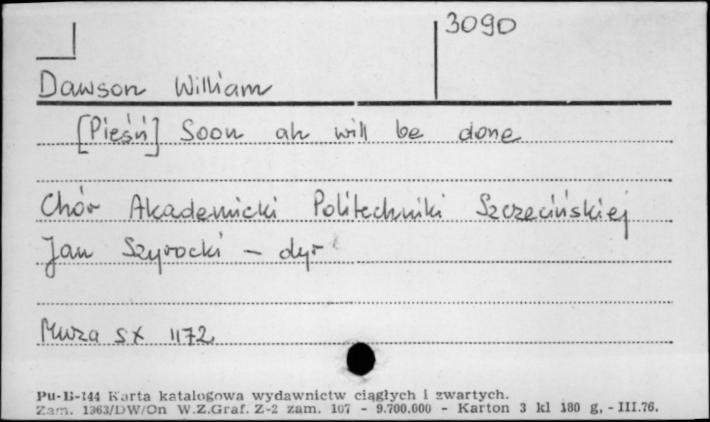 3090
Dawson William
[Pieśń] Soon ah will be done
Chór Akademicki Politechniki Szczecińskiej
Jan Szyrocki - dyr
Muza SX 1172
Pu-B-144 Karta katalogowa wydawnictw ciągłych i zwartych.
Zam. 1363/DW/On W.Z.Graf. Z-2 zam. 107 - 9.700.000 - Karton 3 kl 180 g. - III.76.